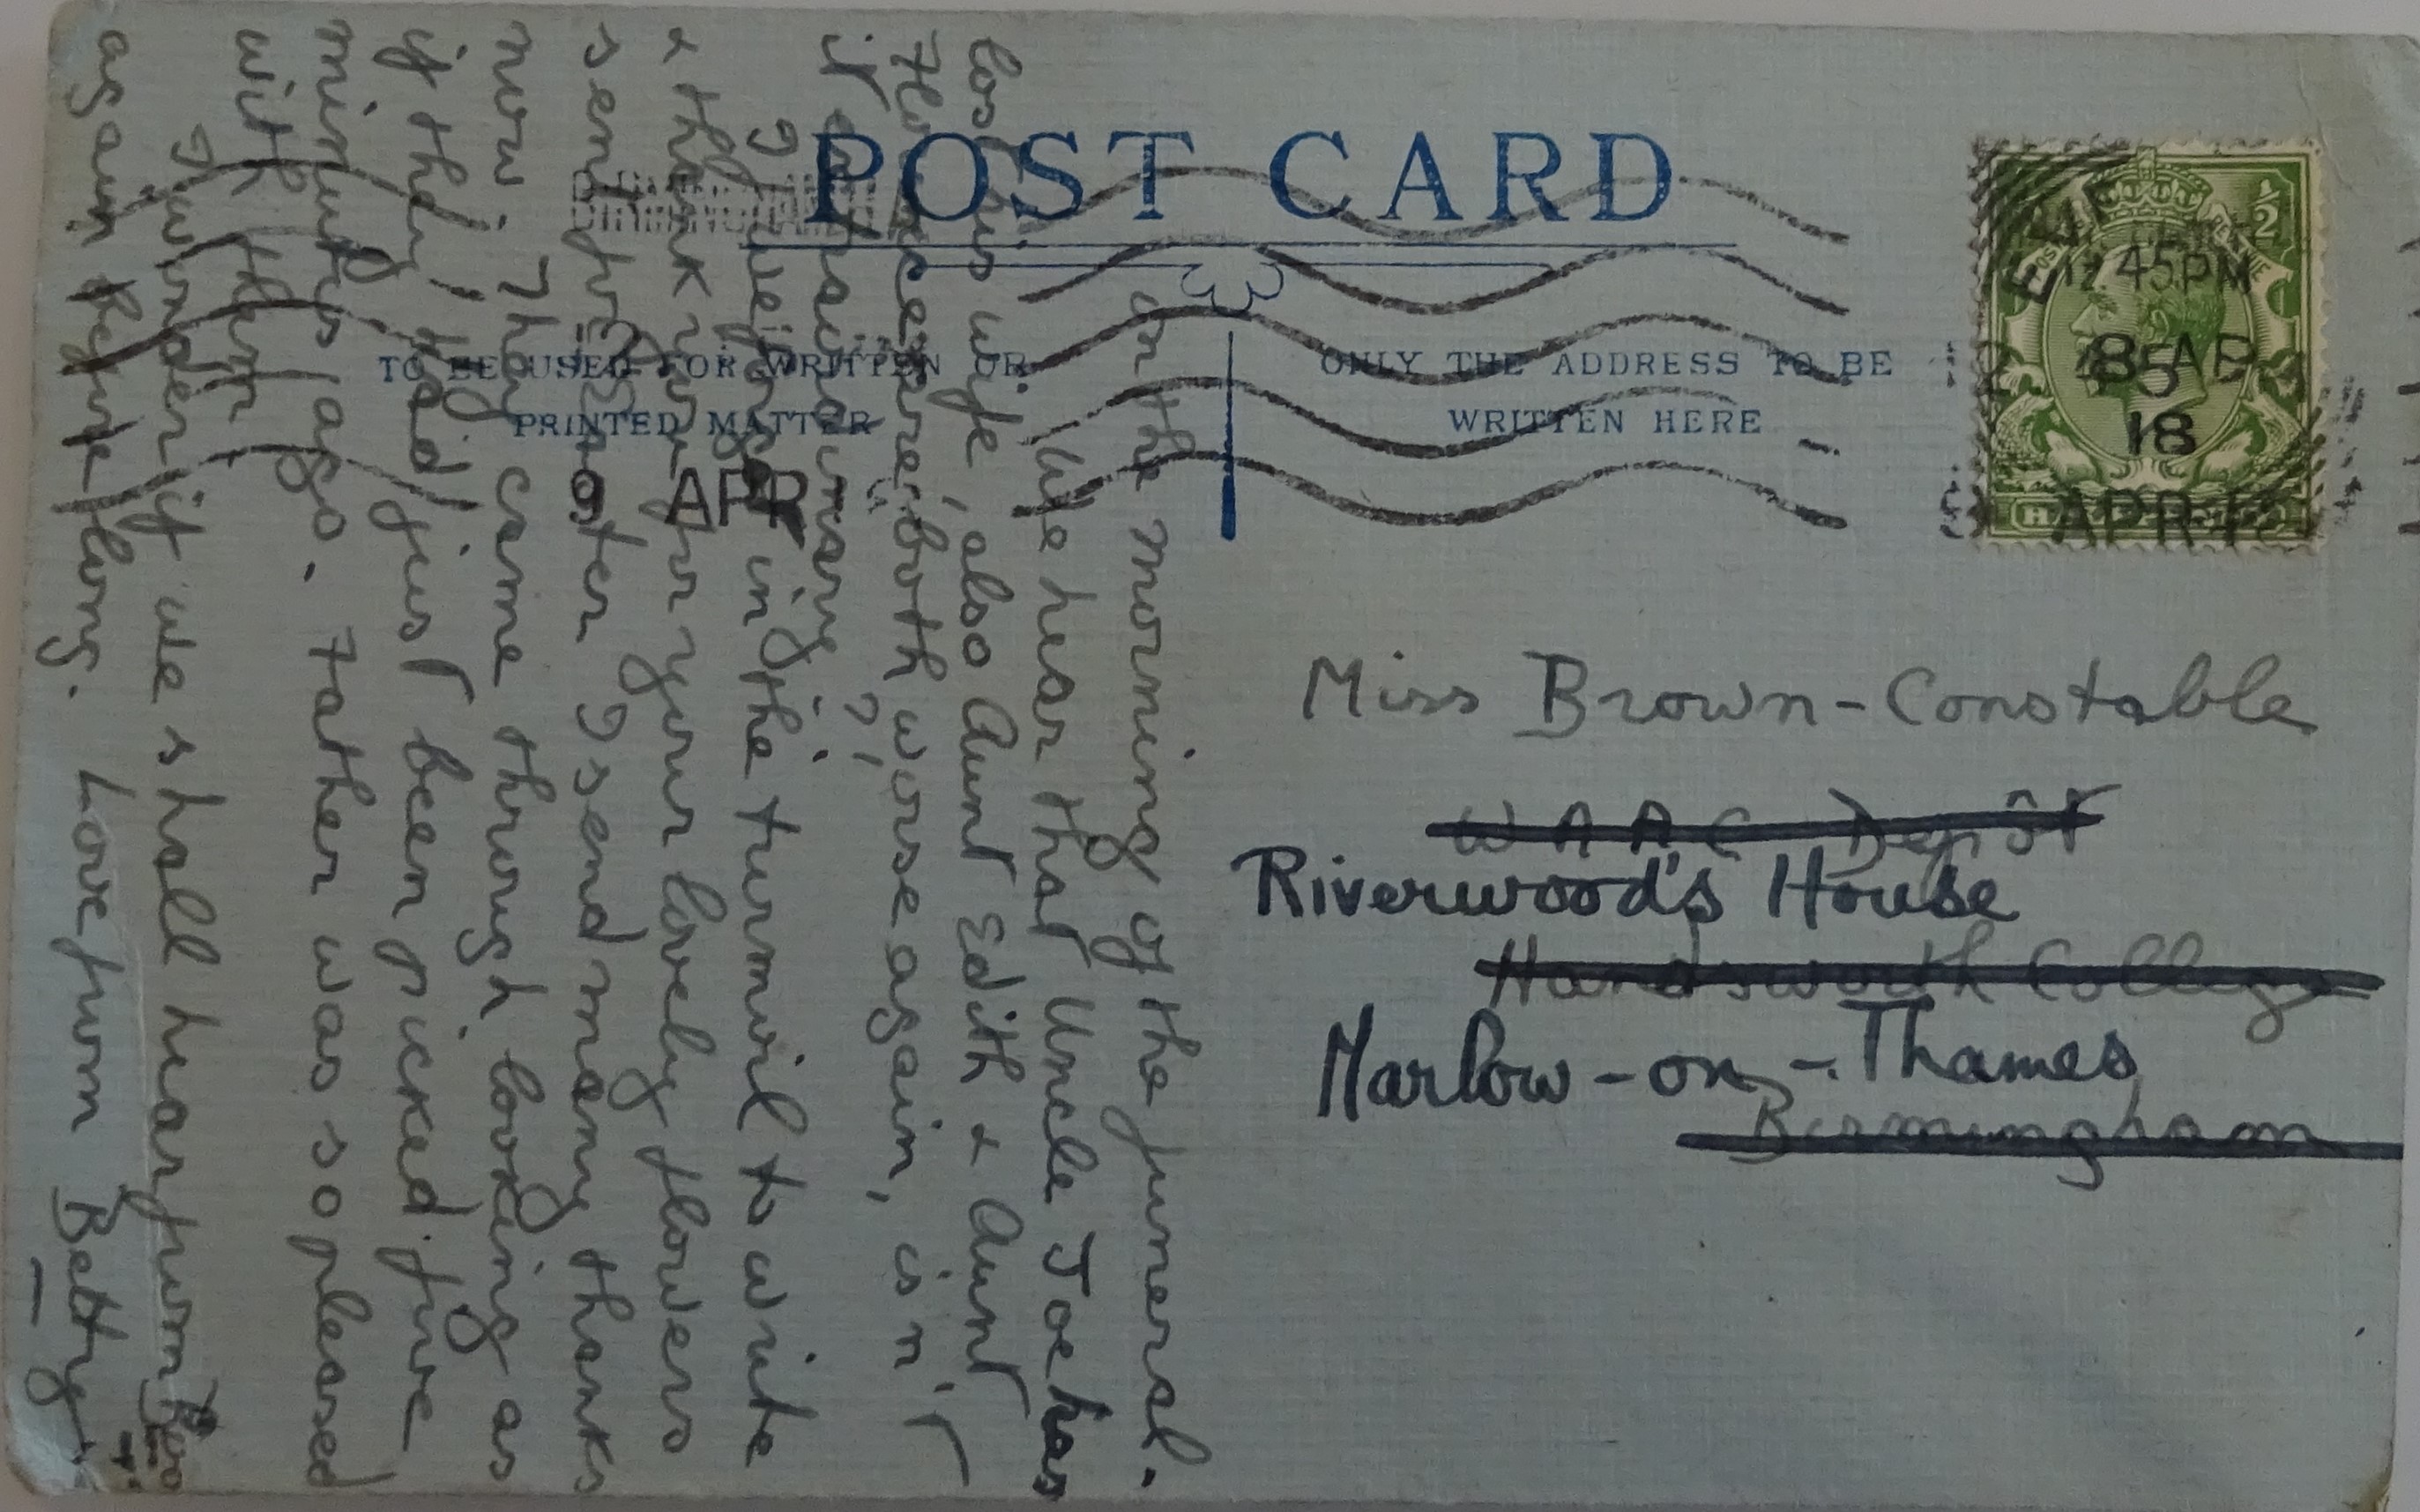 POST CARD
TO BE USED FOR WRITTEN OR
PRINTED MATTER
ONLY THE ADDRESS TO BE
WRITTEN HERE
BIRMINGHAM
9 APR
12.45PM
8 AP
18
APR 18
Miss Brown-Constable
W A A C Depôt
Riverwood's House
Handsworth College
Marlow-on-Thames
Birmingham
on the morning of the funeral.
We hear that Uncle Joe has
lost his wife, also Aunt Edith & Aunt
Florence are both worse again, isn't
it
I in the turmoil to write
& thank you for your lovely flowers
sent for Easter I send many thanks
now. They came through looking as
if they had just been picked five
minutes ago. Father was so pleased
with them
I wonder if we shall hear from
again before long. Love from Betty